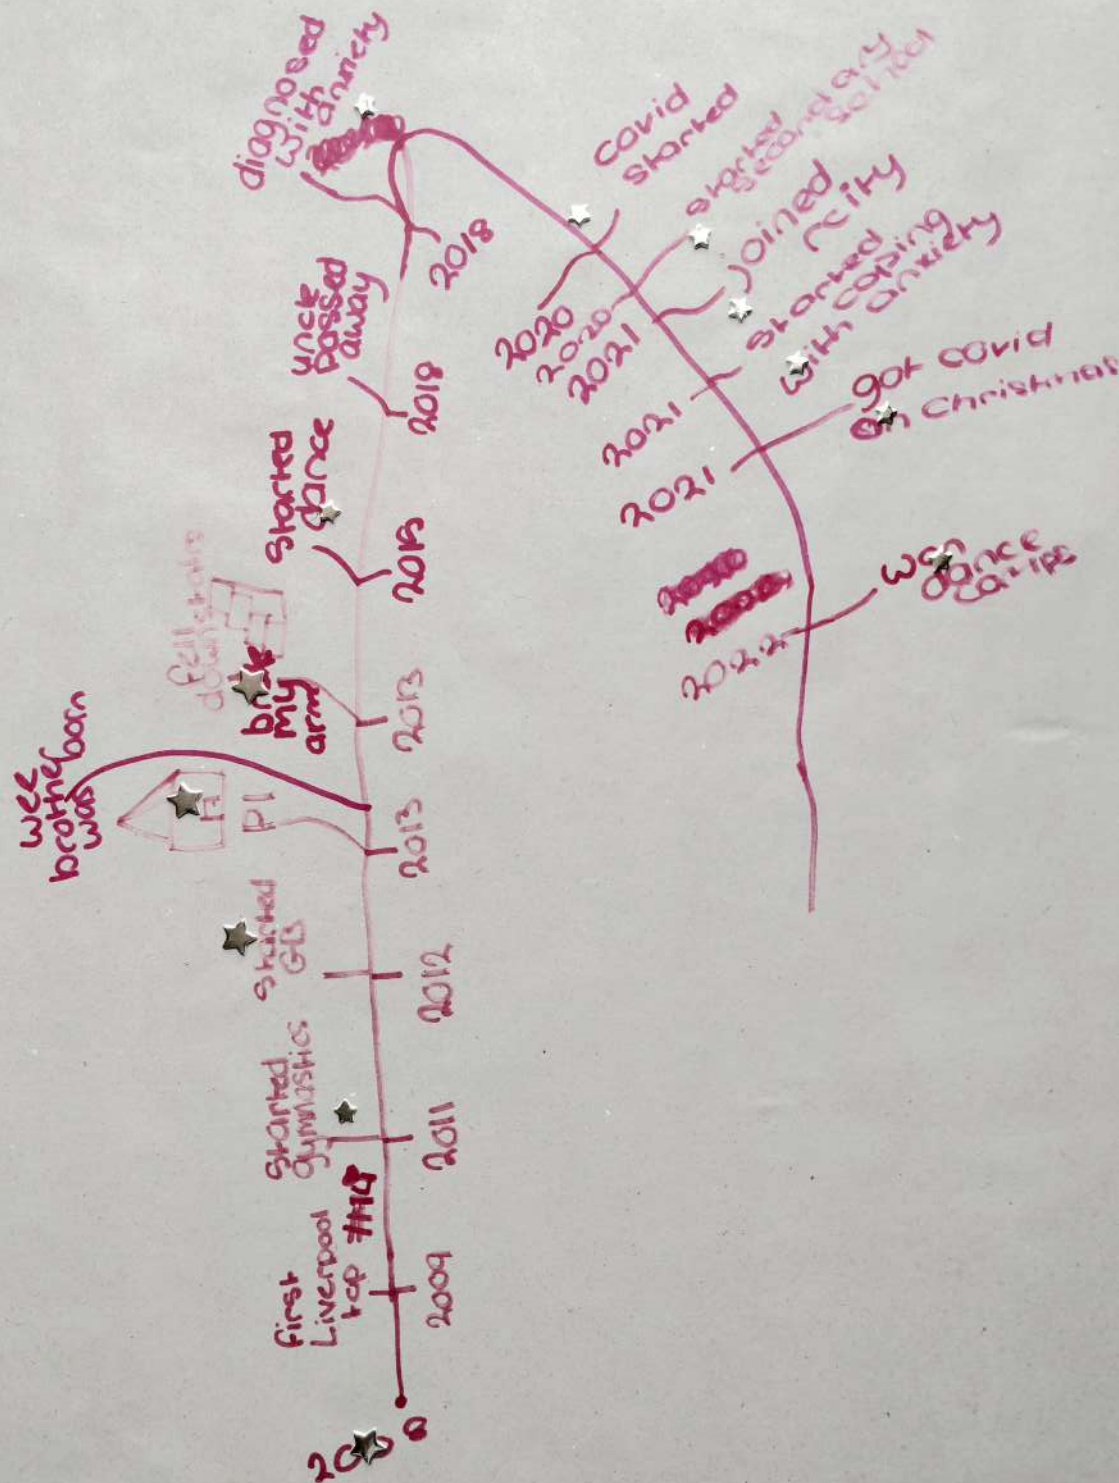 2008
first
Liverpool
top
2009
started
gymnastics
2011
started
GB
2012
P1
2013
wee
brother born
was
fell
down stairs
broke
my
arm
2013
started
dance
uncle
passed
away
2018
diagnosed
with
anxiety
2018
covid
started
2020
started
secondary
school
2020
joined
city
2021
started
coping
with anxiety
2021
got covid
on Christmas
2021
won
dance
2022